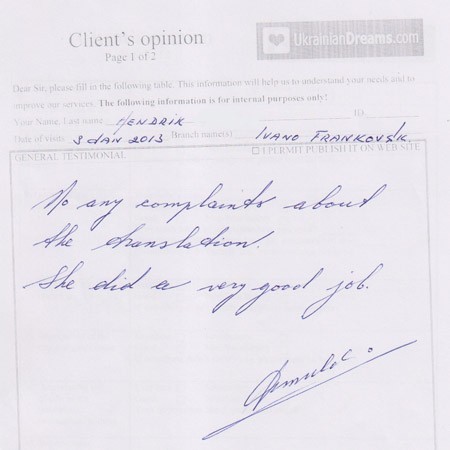 Client's opinion
Page 1 of 2
UkrainianDreams.com
Dear Sir, please fill in the following table. This information will help us to understand your needs and to
improve our services. The following information is for internal purposes only!
Your Name, Last name HENDRIK ID
Date of visits 3 JAN 2013 Branch name(s) IVANO FRANKOVSK
GENERAL TESTIMONIAL ☐ I PERMIT PUBLISH IT ON WEB SITE
No any complaints about
the translation.
She did a very good job.